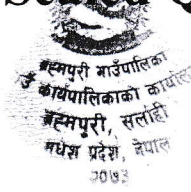 ब्रह्मपुरी गाउँपालिका
गाउँ कार्यपालिकाको कार्यालय
ब्रह्मपुरी, सर्लाही
मधेश प्रदेश, नेपाल
२०७३